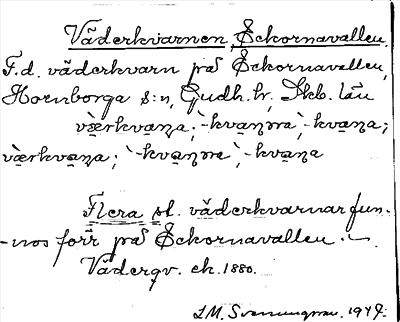 Väderkvarnen, Ekornavallen,
F.d. väderkvarn på Ekornavallen,
Hornborga s:n, Gudh. hr, Skb. län
væ̀rkvaɳa; -kvaɳɳa, -kvaɳa;
væ̀rkvaɳa; -kvaɳɳa, -kvaɳa
Flera st. väderkvarnar fun-
-nos förr på Ekornavallen.
Väderqv. ek. 1880.
1947.